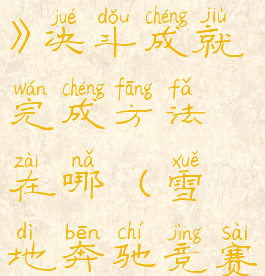 jué dǒu chéng jiù
》决斗成就
wán chéng fāng fǎ
完成方法
zài nǎ xuě
在哪（雪
dì bēn chí jìng sài
地奔驰竞赛